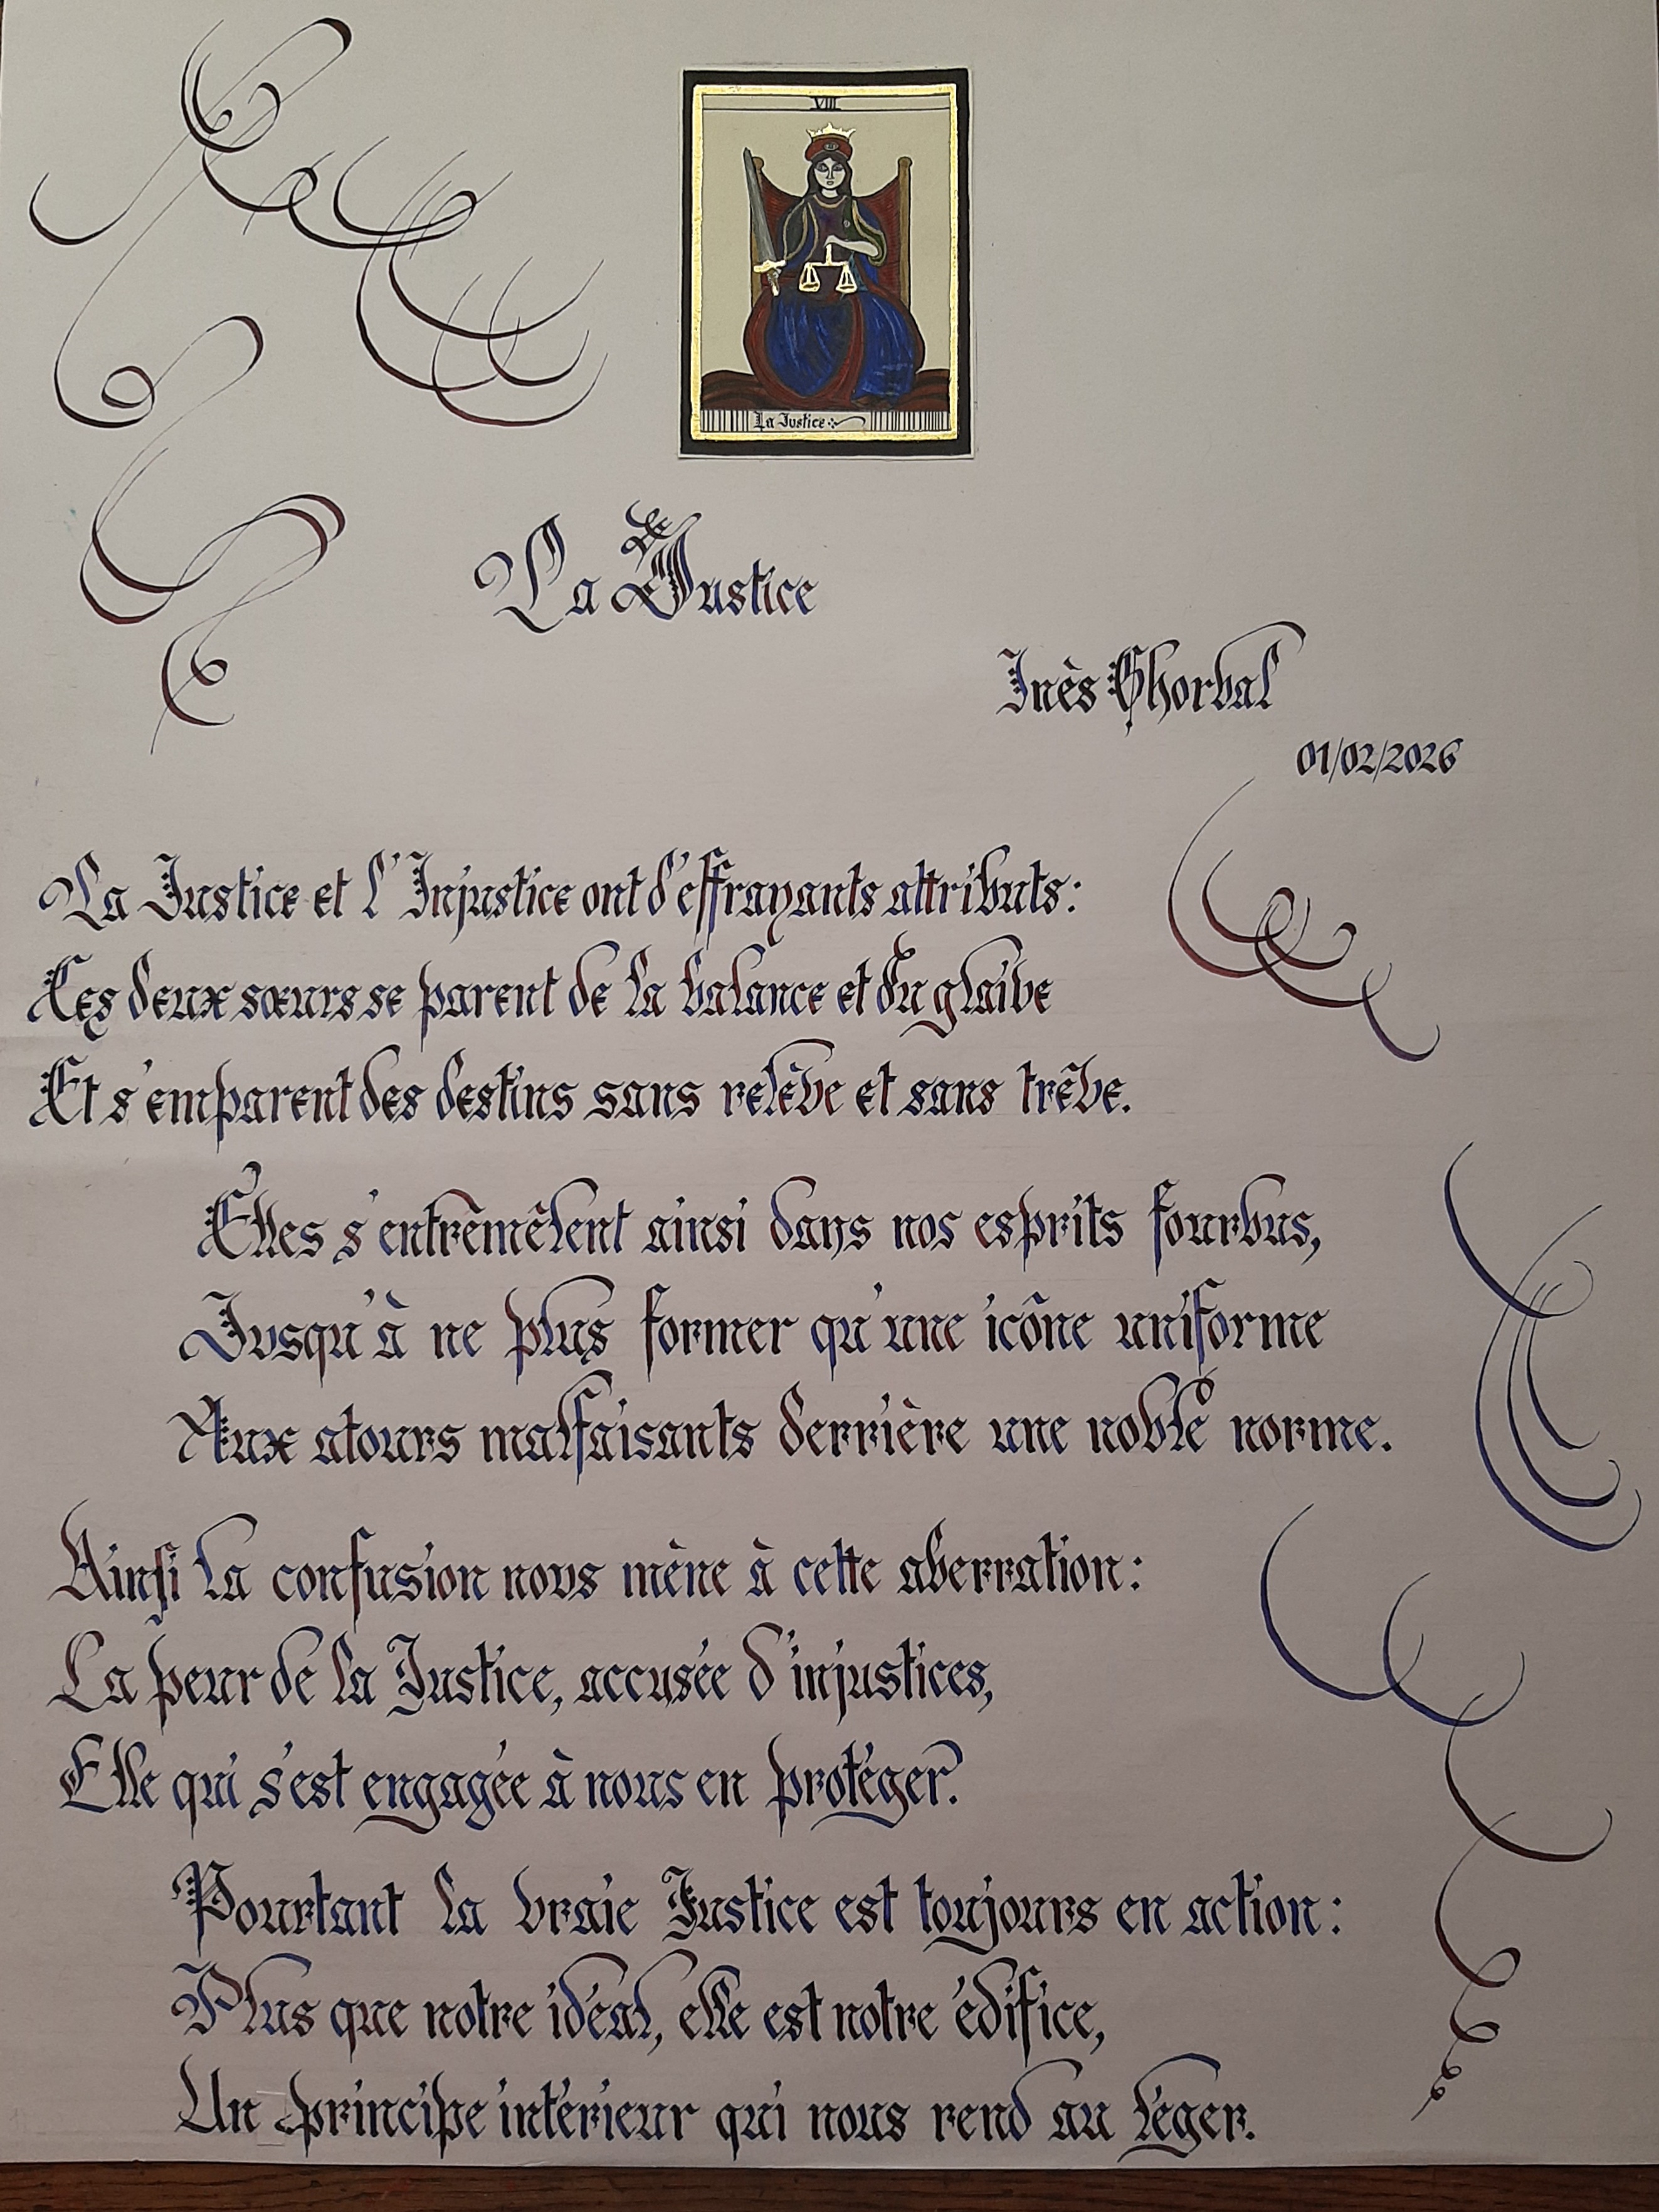 VIII
La Justice
La Justice
Inès Ghorbal
01/02/2026
La Justice et l'Injustice ont d'effrayants attributs:
Ces deux sœurs se parent de la balance et du glaive
Et s'emparent des destins sans relève et sans trêve.
Elles s'entremêlent ainsi dans nos esprits fourbus,
Jusqu'à ne plus former qu'une icône uniforme
Aux atours malfaisants derrière une noble norme.
Ainsi la confusion nous mène à cette aberration:
La peur de la Justice, accusée d'injustices,
Elle qui s'est engagée à nous en protéger.
Pourtant la vraie Justice est toujours en action:
Plus que notre idéal, elle est notre édifice,
Un principe intérieur qui nous rend au léger.